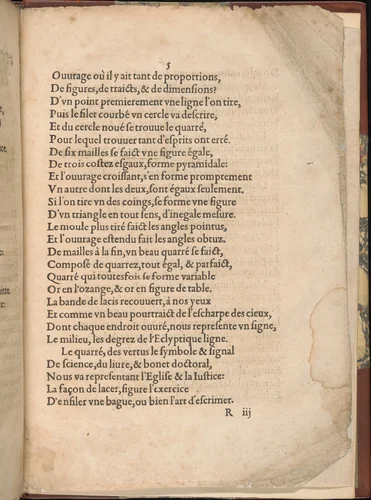 5
Ouurage où il y ait tant de proportions,
De figures, de traicts, & de dimensions?
D'vn point premierement vne ligne l'on tire,
Puis le filet courbé vn cercle va descrire,
Et du cercle noué se trouue le quarré,
Pour lequel trouuer tant d'esprits ont erré.
De six mailles se faict vne figure égale,
De trois costez esgaux, forme pyramidale:
Et l'ouurage croissant, s'en forme promptement
Vn autre dont les deux, sont égaux seulement.
Si l'on tire vn des coings, se forme vne figure
D'vn triangle en tout sens, d'inegale mesure.
Le moule plus tiré faict les angles pointus,
Et l'ouurage estendu fait les angles obtuz.
De mailles à la fin, vn beau quarré se faict,
Composé de quarrez, tout égal, & parfaict,
Quarré qui toutesfois se forme variable
Or en l'ozange, & or en figure de table.
La bande de lacis recouuert, à nos yeux
Et comme vn beau pourtraict de l'escharpe des cieux,
Dont chaque endroit ouuré, nous represente vn signe,
Le milieu, les degrez de l'Eclyptique ligne.
Le quarré, des vertus le symbole & signal
De science, du liure, & bonet doctoral,
Nous va representant l'Eglise & la Iustice:
La façon de lacer, figure l'exercice
D'enfiler vne bague, ou bien l'art d'escrimer.
R iij